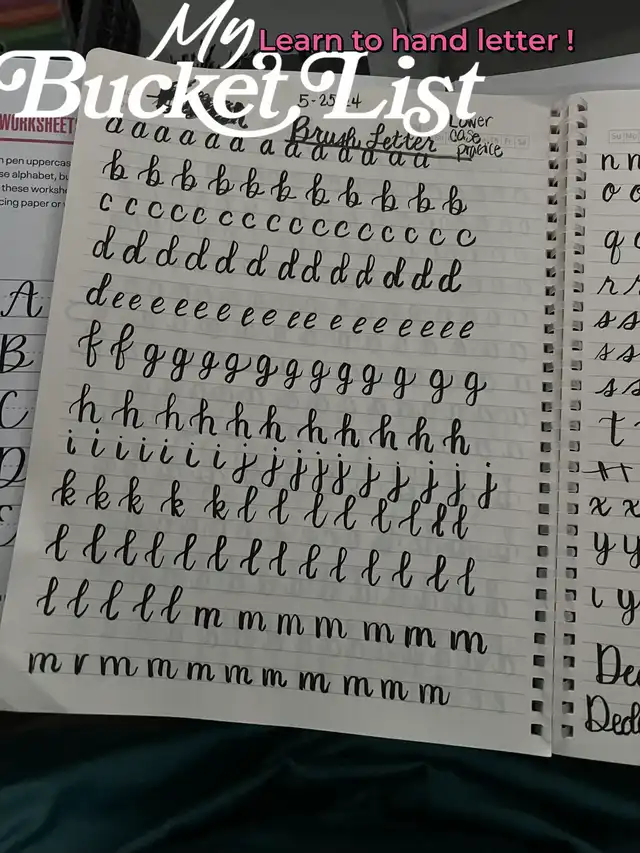 My
Learn to hand letter !
Bucket List
5-25-24
Brush Letter
Lower
case
practice
a a a a a a a a a a a a a a
b b b b b b b b b b b b
c c c c c c c c c c c c c c c c
d d d d d d d d d d d d d
d e e e e e e e e e e e e e e e e
f f g g g g g g g g g g g g g
h h h h h h h h h h h h
i i i i i i i j j j j j j j j j j
k k k k k l l l l l l l l
l l l l l l l l l l l l l l
l l l l l m m m m m m m
m r m m m m m m m m m
WORKSHEET
pen uppercas
se alphabet, bu
these workshe
cing paper or
A
B
C
D
n
o
q
r
s s
s s
s s
t
x x
y y
i y
De
Decl